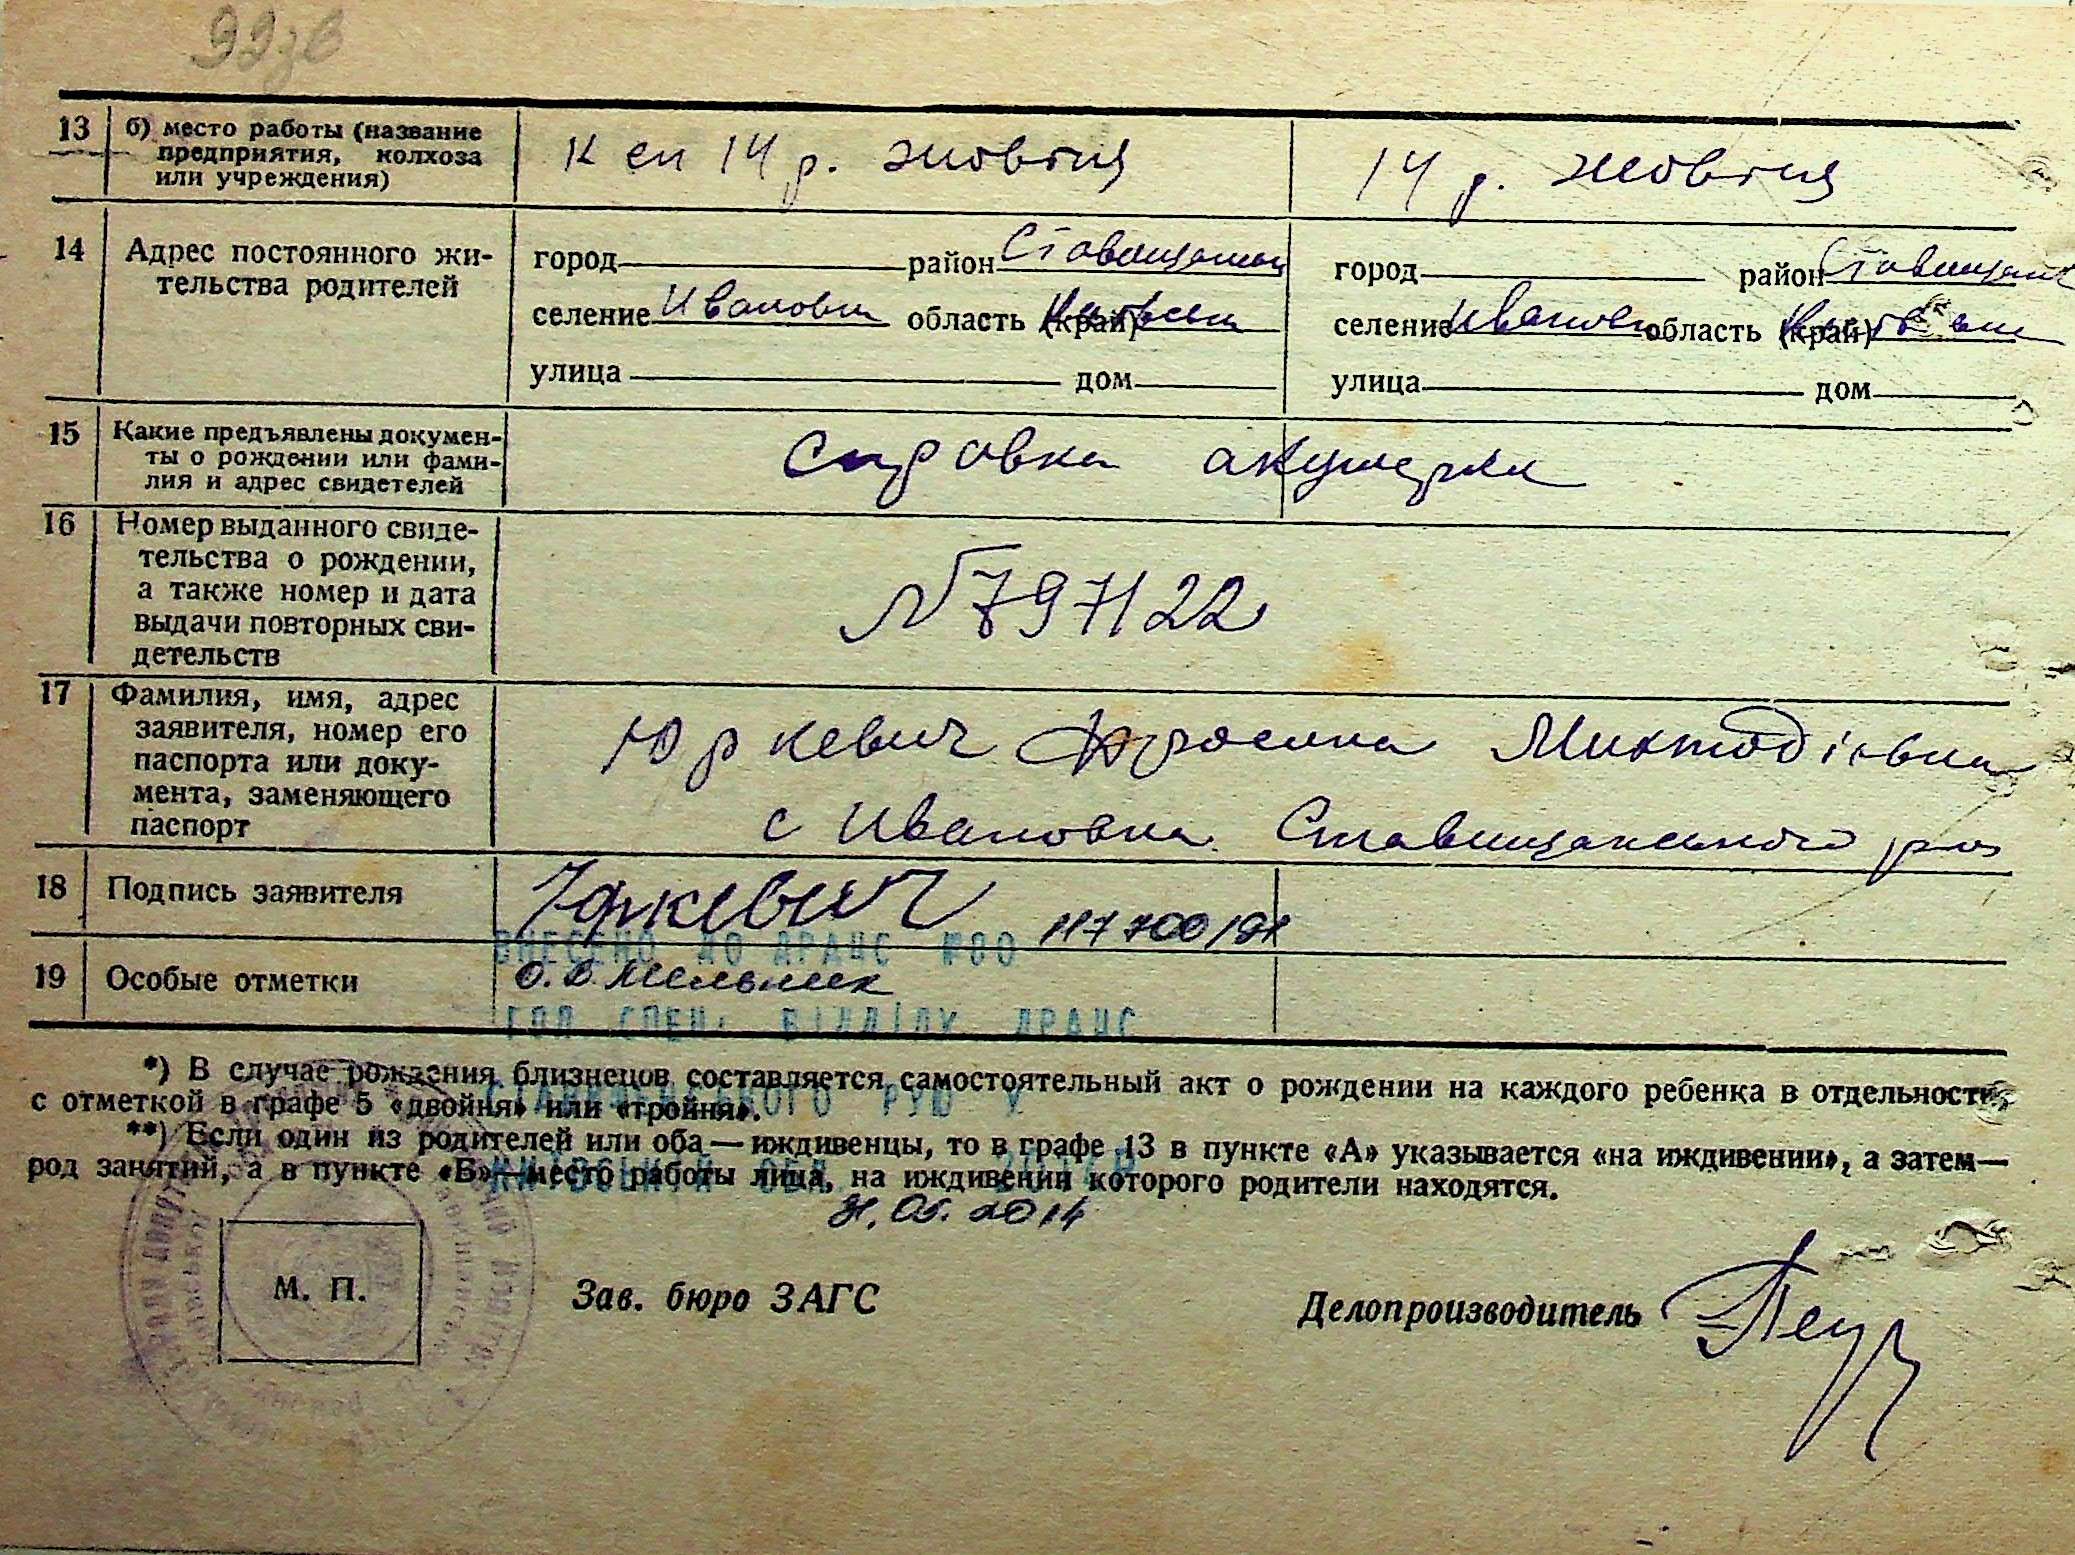 99зв
13 б) место работы (название
предприятия, колхоза
или учреждения)
К сп 14 р. жовтня
14 р. жовтня
14 Адрес постоянного жи-
тельства родителей
город район
селение Ивановка область (край)
улица дом
город район
селение область (край)
улица дом
15 Какие предъявлены докумен-
ты о рождении или фами-
лия и адрес свидетелей
Справка акушерки
16 Номер выданного свиде-
тельства о рождении,
а также номер и дата
выдачи повторных сви-
детельств
№797122
17 Фамилия, имя, адрес
заявителя, номер его
паспорта или доку-
мента, заменяющего
паспорт
Юркевич Фросина
с Ивановка Ставищанського р-на
18 Подпись заявителя
Юркевич
ВНЕСЕНО ДО ДРАЦС №00
19 Особые отметки
О.В. Мельник
ГОЛ СПЕЦ. ВІДДІЛУ ДРАЦС
*) В случае рождения близнецов составляется самостоятельный акт о рождении на каждого ребенка в отдельности,
с отметкой в графе 5 «двойня» или «тройня».
СТАВИЩЕНСЬКОГО РУЮ У
**) Если один из родителей или оба — иждивенцы, то в графе 13 в пункте «А» указывается «на иждивении», а затем—
род занятий, а в пункте «Б»—место работы лица, на иждивении которого родители находятся.
КИЇВСЬКІЙ ОБЛ.
05.2014
М. П.
Зав. бюро ЗАГС
Делопроизводитель